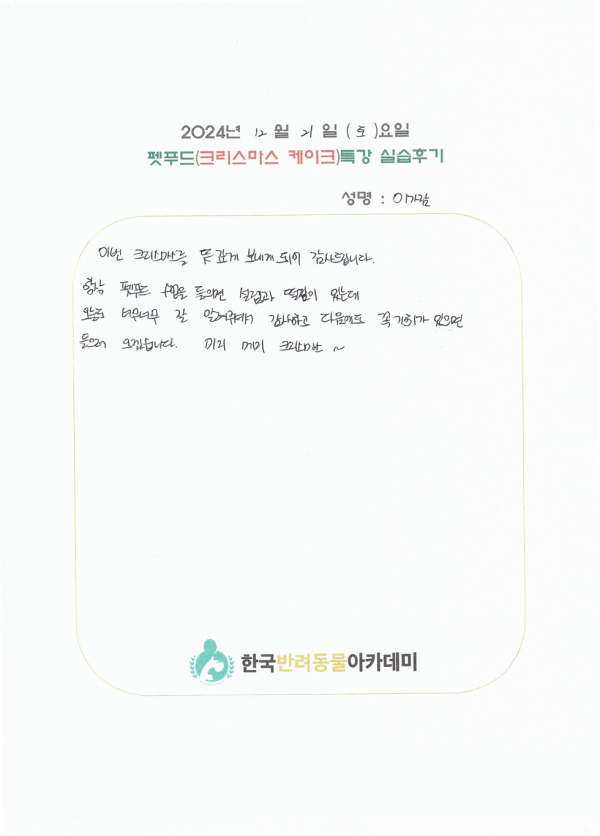 2024년 12월 21일 (토)요일
펫푸드(크리스마스 케이크)특강 실습후기
성명 :
이번 크리스마스를 뜻깊게 보내게 되어 감사드립니다.
항상 펫푸드 수업을 들으면 설렘과 떨림이 있는데
오늘도 너무너무 잘 알려주셔서 감사하고 다음에도 꼭 기회가 있으면
들으러 오겠습니다. 미리 메리 크리스마스 ~
한국반려동물아카데미